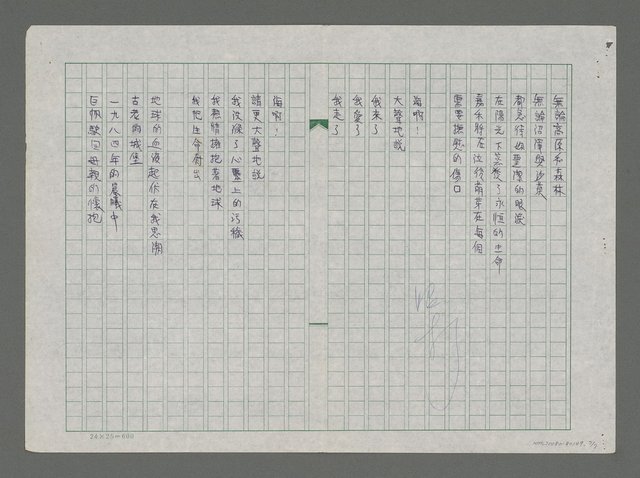 無論高原和森林
無論沼澤與沙漠
都急待如聖潔的眼淚
在陽光下蒸發了永恒的生命
嘉禾靜在這後萌芽在每個
需要撫慰的傷口
海啊！
大聲地說
我來了
我愛了
我走了
海啊！
請更大聲地說
我洗滌了心靈上的污穢
我熱情擁抱著地球
我把生命付出
地球的血液起伏在我思潮
古老的城堡
一九八四年的晨曦中
巨帆駛回母親的懷抱
24×25=600